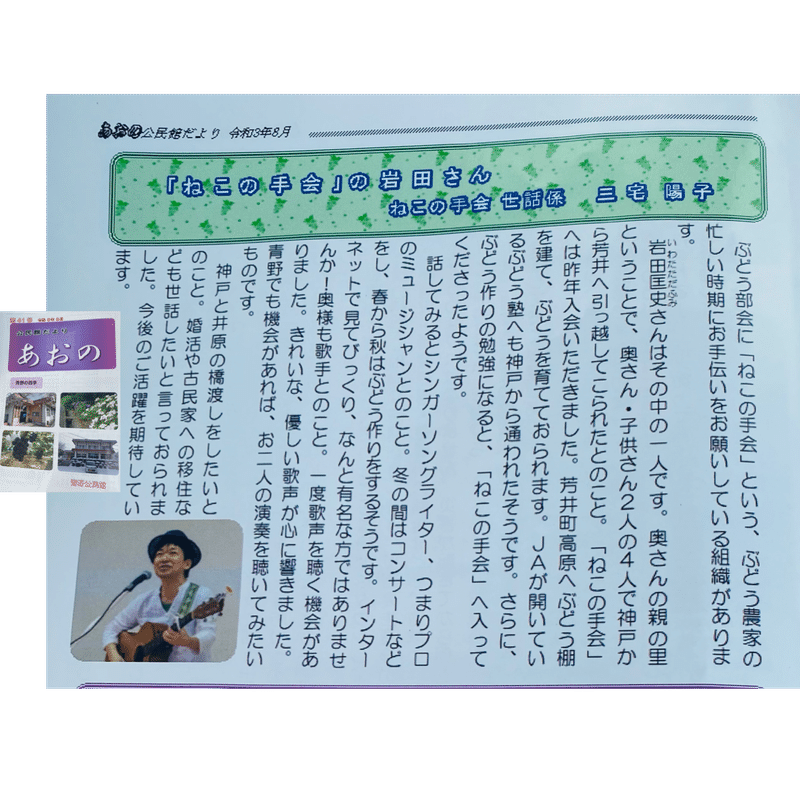 あおの公民館だより 令和3年8月
「ねこの手会」の岩田さん
ねこの手会 世話係 三宅 陽子
ぶどう部会に「ねこの手会」という、ぶどう農家の
忙しい時期にお手伝いをお願いしている組織がありま
す。
岩田匡史さんはその中の一人です。奥さんの親の里
いわたただふみ
ということで、奥さん・子供さん2人の4人で神戸か
ら芳井へ引っ越してこられたとのこと。「ねこの手会」
へは昨年入会いただきました。芳井町高原へぶどう棚
を建て、ぶどうを育てておられます。JAが開いてい
るぶどう塾へも神戸から通われたそうです。さらに、
ぶどう作りの勉強になると、「ねこの手会」へ入って
くださったようです。
話してみるとシンガーソングライター、つまりプロ
のミュージシャンとのこと。冬の間はコンサートなど
をし、春から秋はぶどう作りをするそうです。インター
ネットで見てびっくり、なんと有名な方ではありませ
んか!奥様も歌手とのこと。一度歌声を聴く機会があ
りました。きれいな、優しい歌声が心に響きました。
青野でも機会があれば、お二人の演奏を聴いてみたい
ものです。
神戸と井原の橋渡しをしたいと
のこと。婚活や古民家への移住な
ども世話したいと言っておられま
した。今後のご活躍を期待してい
ます。
公民館だより
あおの